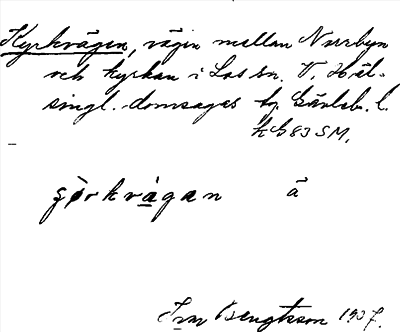 Kyrkvägen, vägen mellan Norrbyn
och kyrkan i Los sn. V. Häl-
singl. domsagas tg. Gävleb. l.
83 SM.
ā
Bengtsson 1937.